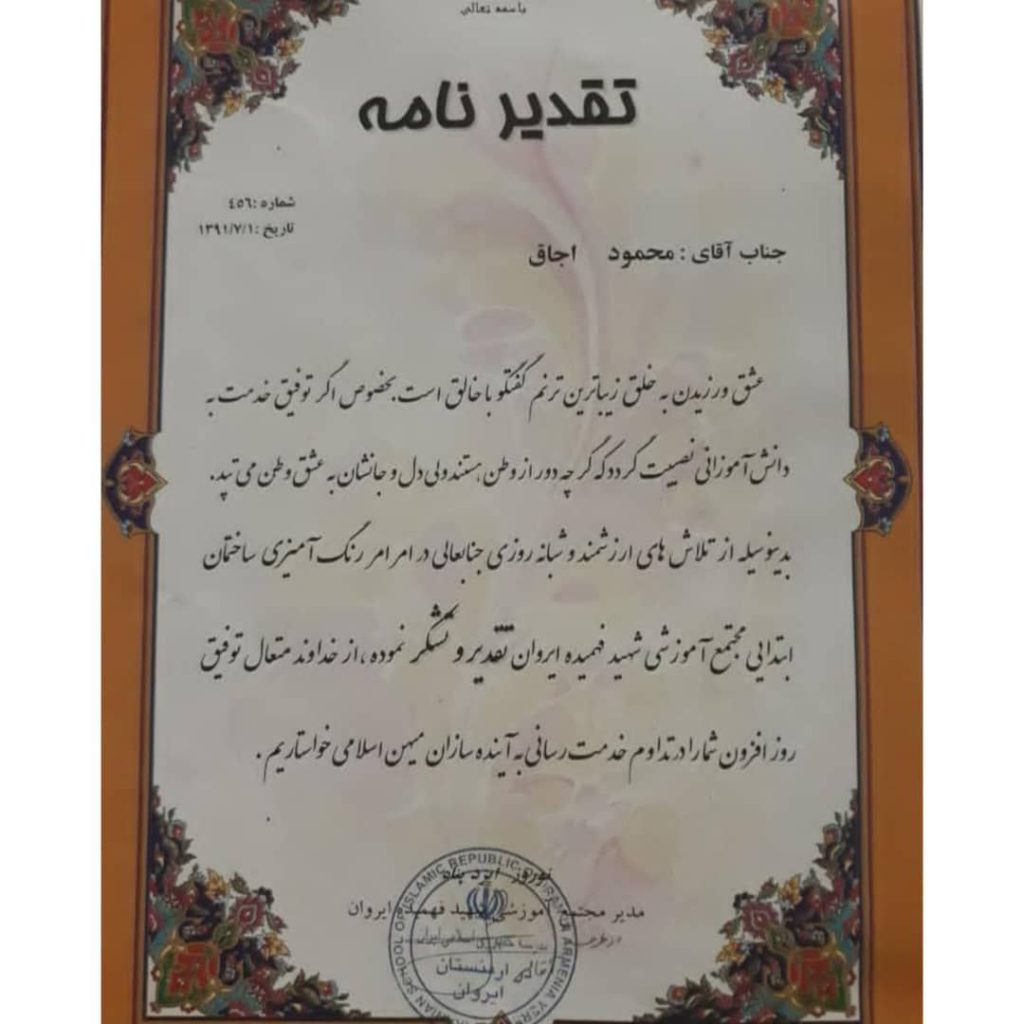 باسمه تعالی
تقدیر نامه
شماره :٤٥٦
تاریخ :١٣٩١/٧/١
جناب آقای : محمود اجاق
عشق ورزیدن به خلق زیباترین ترنم گفتگو با خالق است. بخصوص اگر توفیق خدمت به
دانش آموزانی نصیبت گردد که گر چه دور از وطن هستند ولی دل و جانشان به عشق وطن می تپد.
بدینوسیله از تلاش های ارزشمند و شبانه روزی جنابعالی در امر امر رنگ آمیزی ساختمان
ابتدایی مجتمع آموزشی شهید فهمیده ایروان تقدیر و تشکر نموده ، از خداوند متعال توفیق
روز افزون شما را در تداوم خدمت رسانی به آینده سازان میهن اسلامی خواستاریم .
نوروز ایزدپناه
مدیر مجتمع آموزشی شهید فهمیده ایروان
از طرف
SCHOOL OF ISLAMIC REPUBLIC OF IRAN ARMENIA
ارمنستان
ایروان